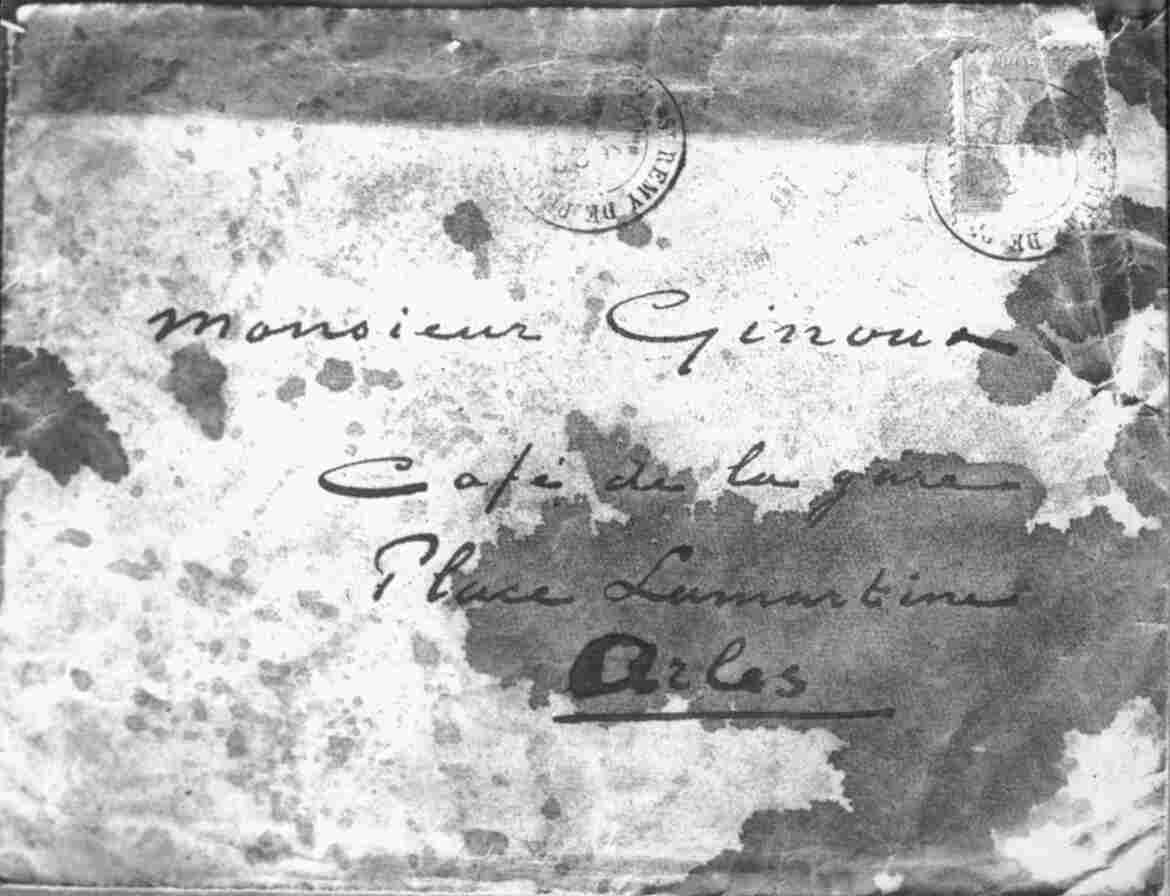 ST REMY DE P
DE
Monsieur Ginoux
Café de la gare
Place Lamartine
Arles